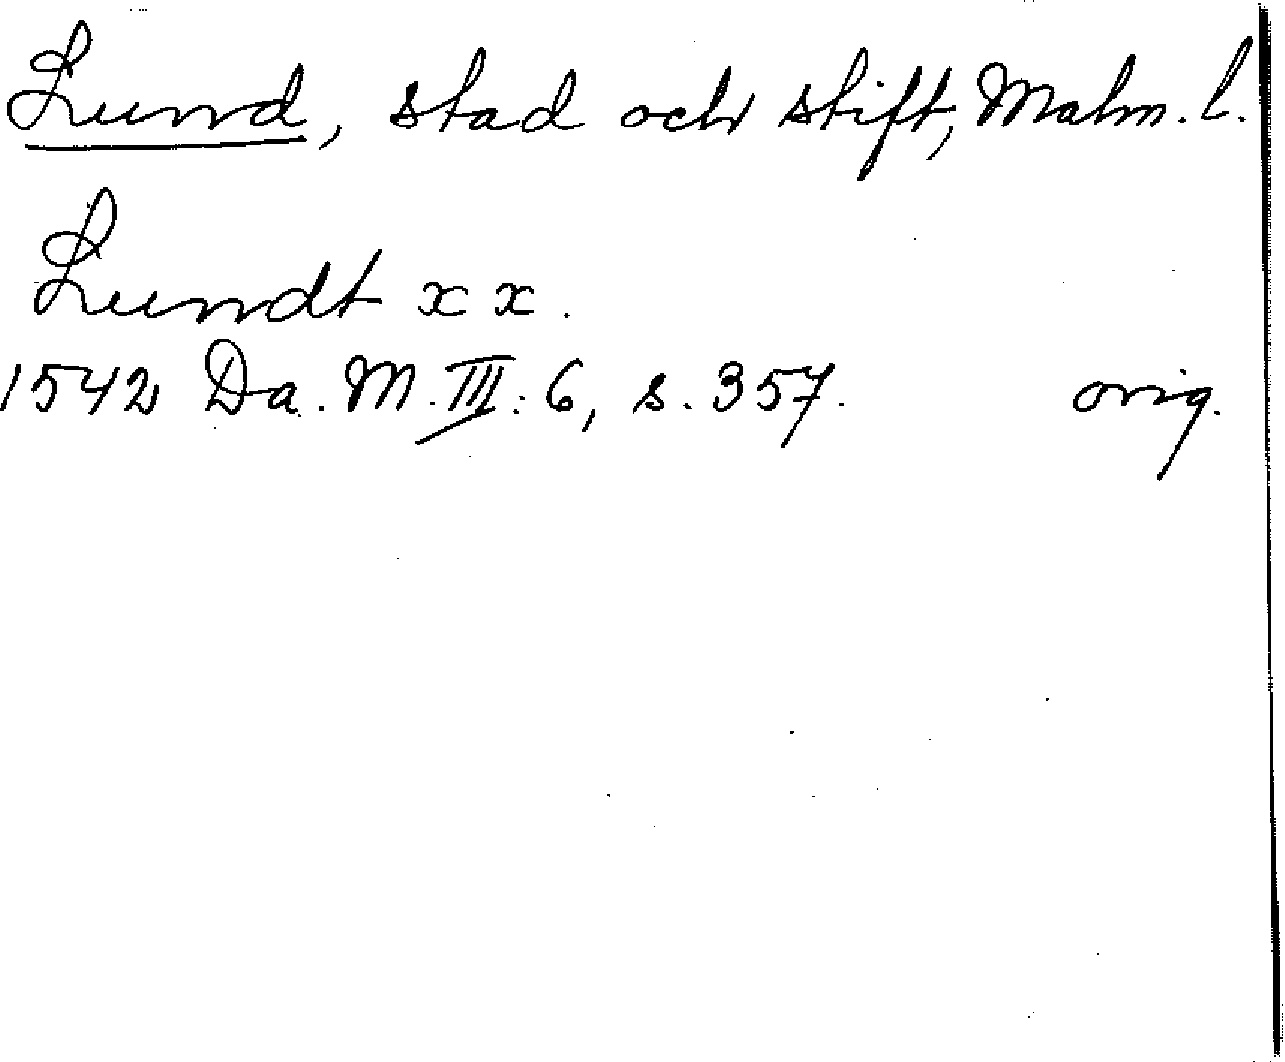 Lund, stad och stift, Malm. l.
Lundt x x.
1542 Da. M. III: 6, s. 357. orig.